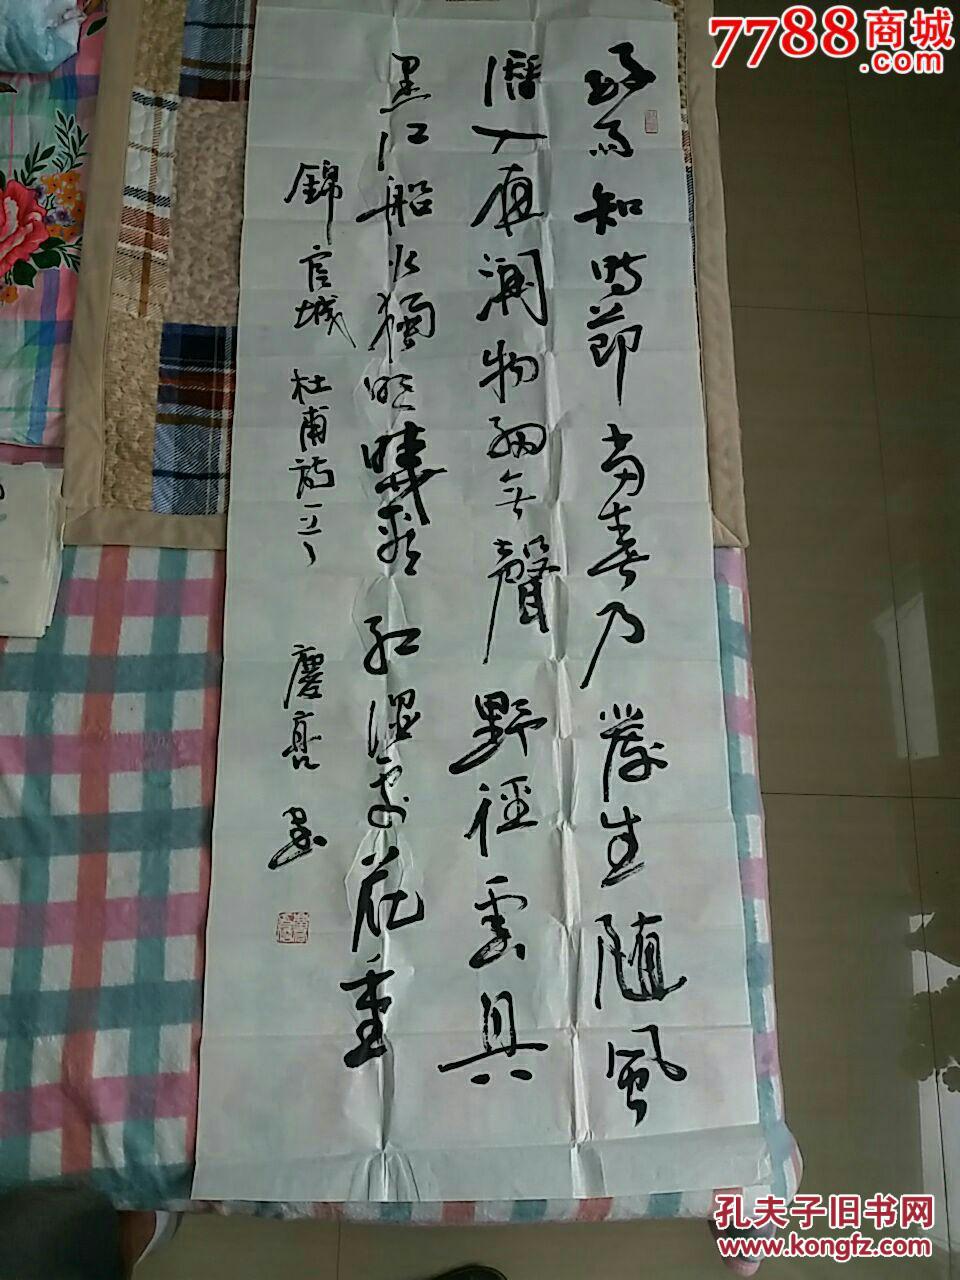 7788商城
好雨知時節當春乃發生随風
潛入夜潤物細無聲野徑雲具
黑江船火獨明曉看紅濕處花重
錦官城 杜甫詩一首 慶亮書
孔夫子旧书网
www.kongfz.com